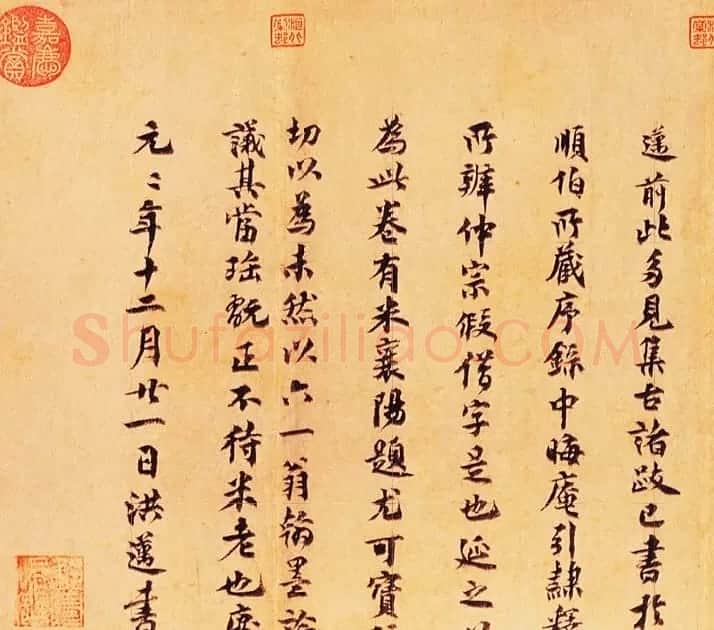 邁前此多見集古諸跋已書於
順伯所藏序錄中晦庵引隸釋
所辨仲宗假借字是也延之
為此卷有米襄陽題尤可寶
切以為未然以六一翁翰墨論
議其當珎翫正不待米老也慶
元二年十二月廿一日洪邁書
嘉慶鑑賞
ShufaZiliao.COM